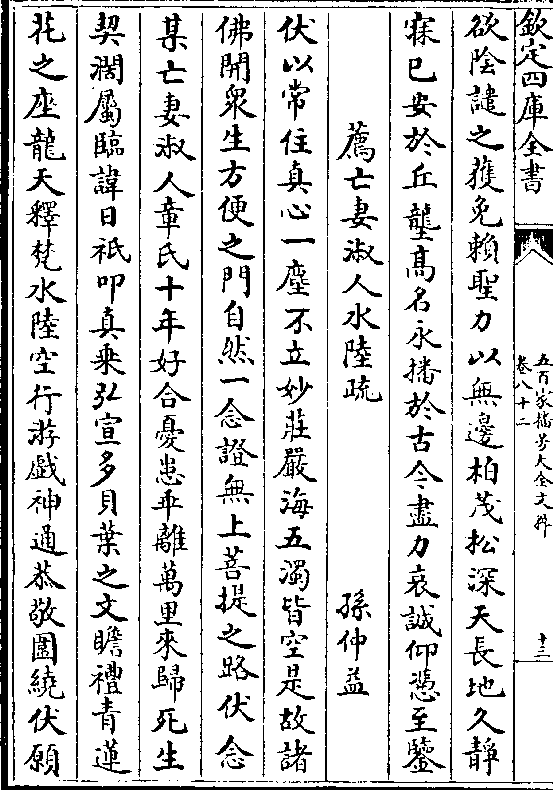 欽定四庫全書
五百家播芳大全文粹
卷八十二
十三
欲陰譴之獲免賴聖力以無邊柏茂松深天長地久靜
寐已安於丘壟高名永播於古今盡力哀誠仰憑至鑒
薦亡妻淑人水陸疏
孫仲益
伏以常住真心一塵不立妙莊嚴海五濁皆空是故諸
佛開衆生方便之門自然一念證無上菩提之路伏念
某亡妻淑人章氏十年好合憂患乖離萬里來歸死生
契濶屬臨諱日祇叩真乗弘宣多貝葉之文瞻禮青蓮
花之座龍天釋梵水陸空行游戲神通恭敬圍繞伏願